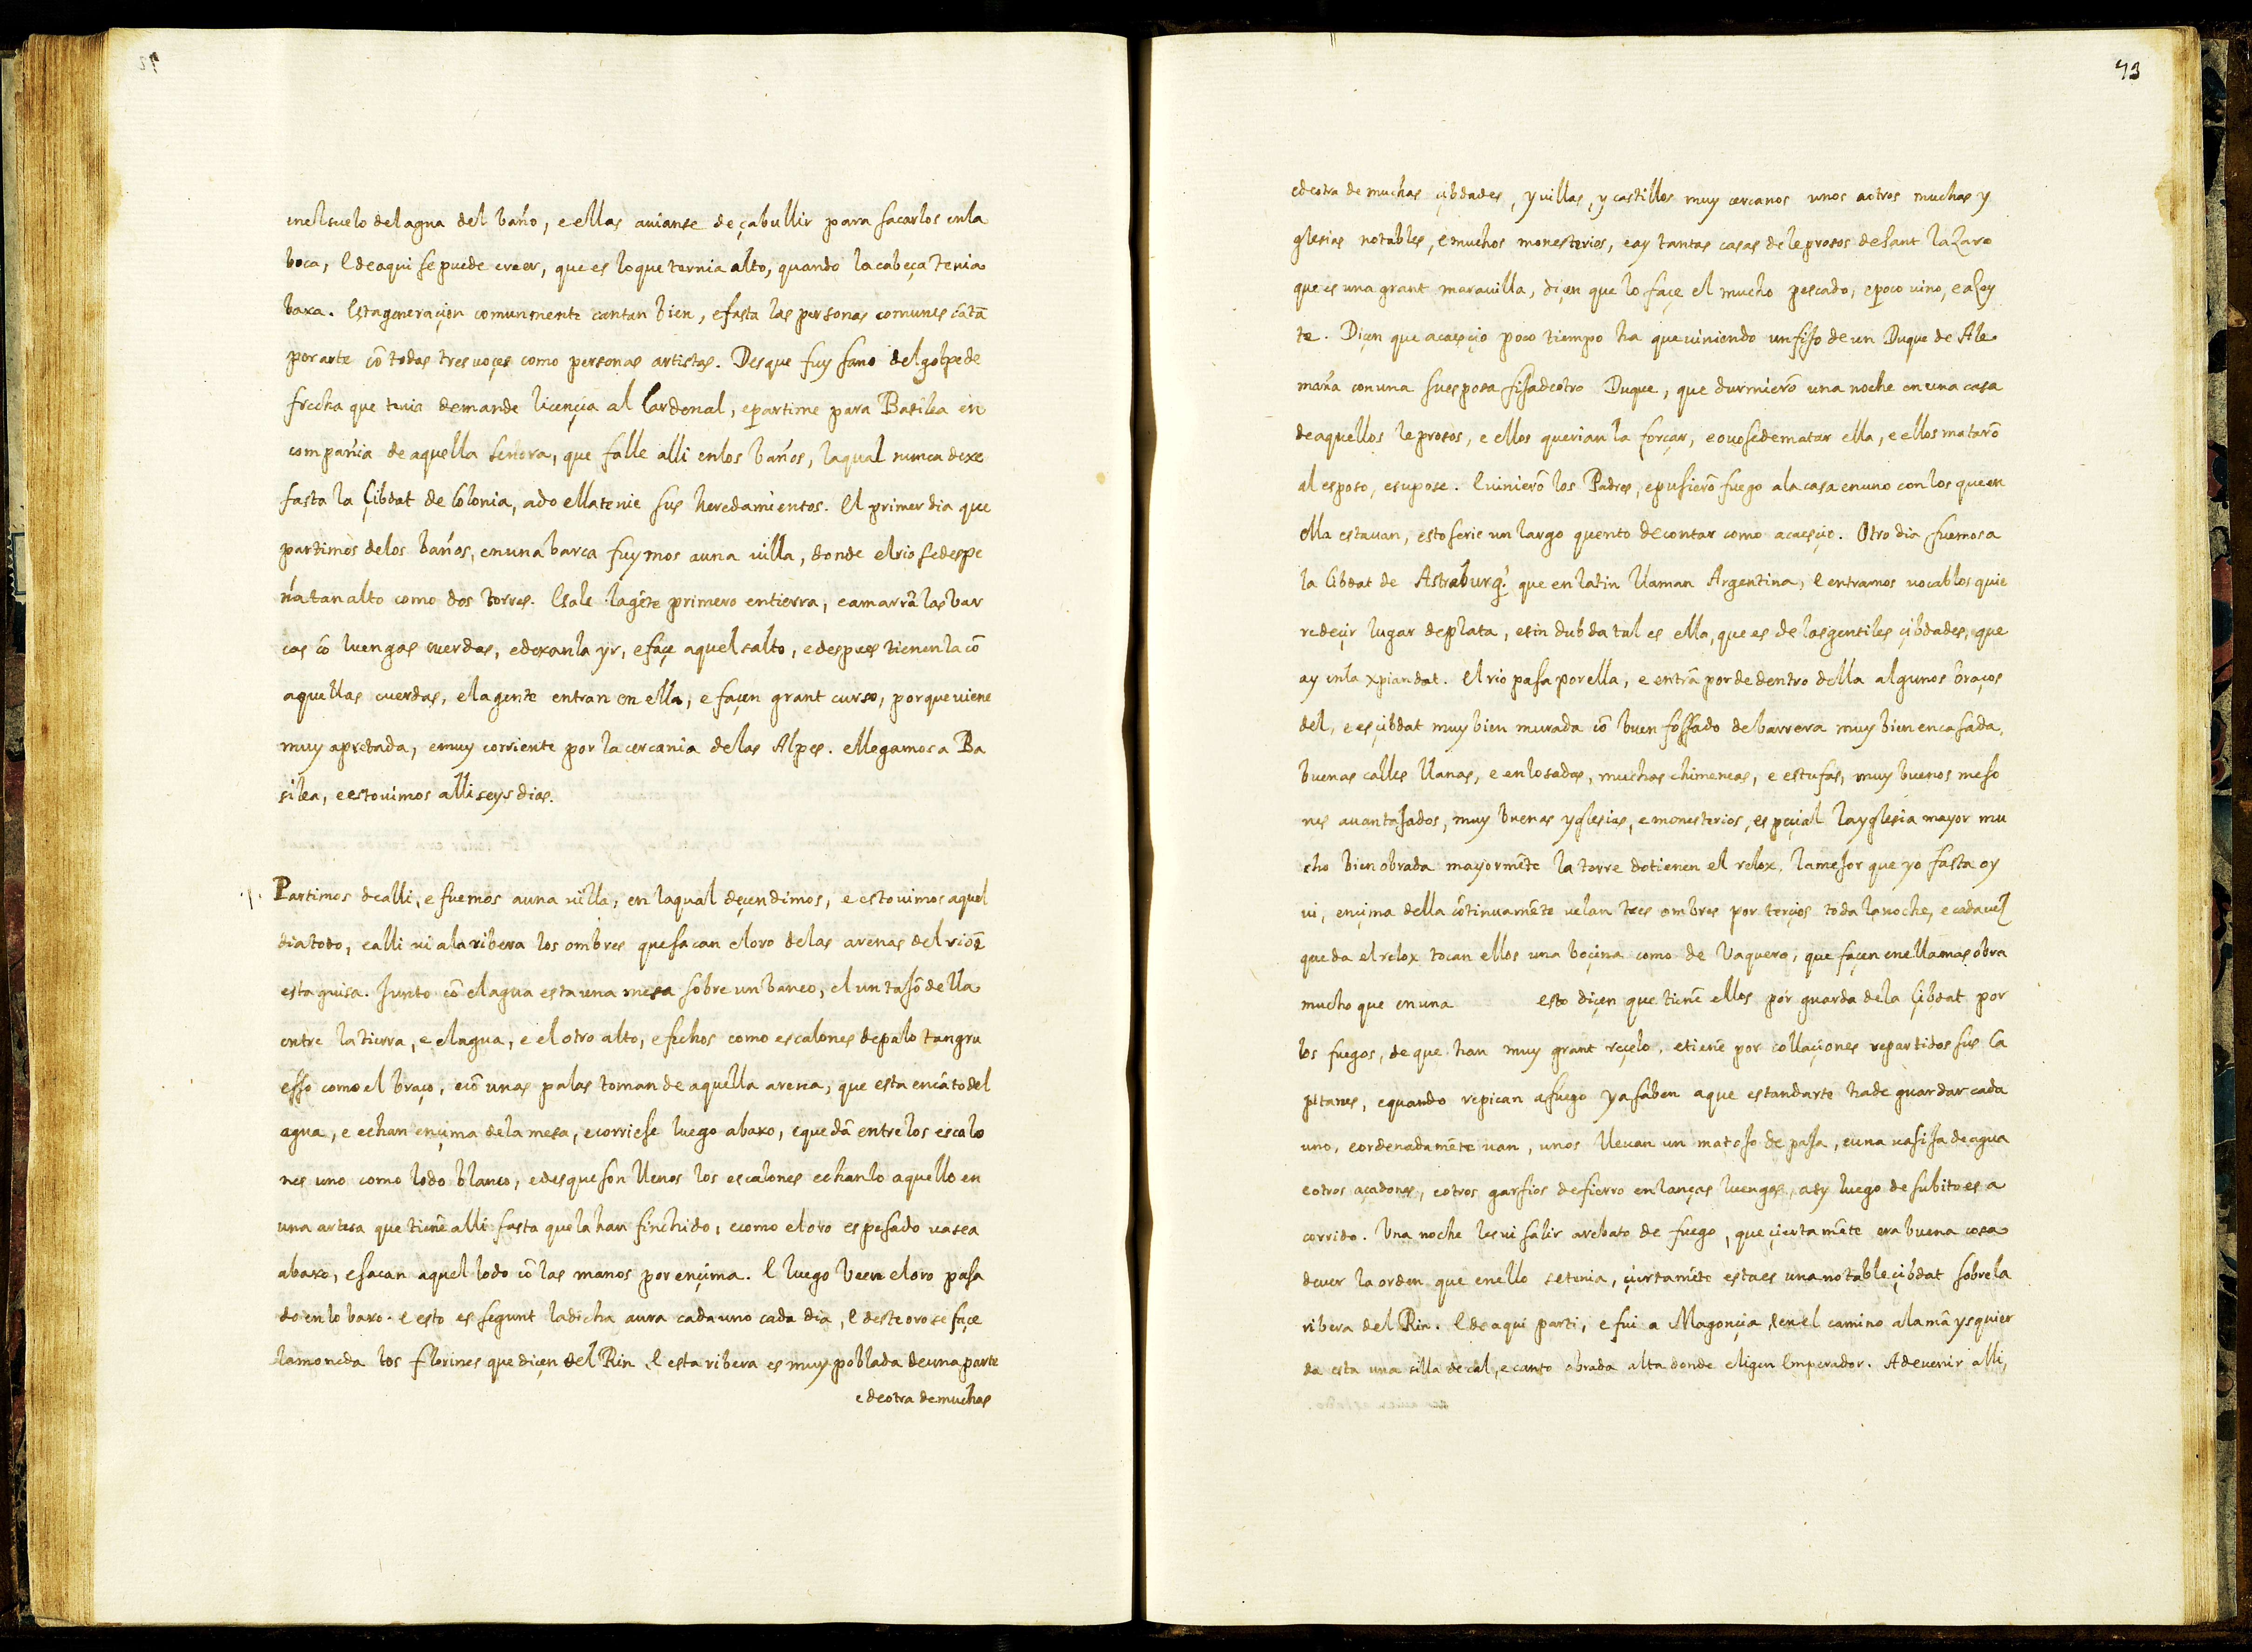 enelsuelo delagua del baño, e ellas auianse de çabullir para sacarlos enla
boca, E deaqui se puede creer, que es loque ternia alto, quando la cabeça tenia
baxa. Esta generaçion comunmente cantan bien, e fasta las personas comunes cãtã
por arte cõ todas tres voçes como personas artistas. Desque fuy sano del golpe de
frecha que tenia demande liçençia al Cardenal, e partime para Basilea en
compañia de aquella señora, que falle alli enlos baños, laqual nunca dexe
fasta la Çibdat de Colonia, ado ella tenie sus heredamientos. El primer dia que
partimos delos baños, en una barca fuymos a una villa, donde el rio se despe
ña tan alto como dos torres. E sale la gẽte primero entierra, e amarrã las bar
cas cõ luengas cuerdas, e dexanla yr, e façe aquel salto, e despues tienenla cõ
aquellas cuerdas, e la gente entran en ella, e façen grant curso, porque viene
muy apretada, e muy corriente por la cercania delas Alpes. e llegamos a Ba
silea, e estouimos alli seys dias.
Partimos de alli, e fuemos a una villa, en laqual deçendimos, e estouimos aquel
dia todo, e alli vi ala ribera los ombres que sacan el oro delas arenas del rio ẽ
esta guisa. Junto cõ el agua esta una mesa sobre un banco, el un tajõ della
entre la tierra, e el agua, e el otro alto, e fechos como escalones de palo tan gru
esso como el braço, e cõ unas palas toman de aquella arena, que esta en cãto del
agua, e echan ençima dela mesa, e corriese luego abaxo, e quedã entre los escalo
nes uno como lodo blanco, e desque son llenos los escalones echanlo aquello en
una artesa que tienẽ alli fasta que la han finchido, e como el oro es pesado vase a
abaxo, e sacan aquel lodo cõ las manos por ençima. E luego veen el oro posa
do en lo baxo. e esto es segunt la dicha aura cada uno cada dia, E deste oro se façe
la moneda los florines que diçen del Rin E esta ribera es muy poblada de una parte
e de otra de muchas
73
e de otra de muchas çibdades, y villas, y castillos muy cercanos unos a otros muchas y
glesias notables, e muchos monesterios, e ay tantas casas de leprosos de sant lazaro
que es una grant marauilla, diçen que lo façe el mucho pescado, e poco vino, e azey
te. Diçen que acaesçio poco tiempo ha que viniendo un fijo de un Duque de Ale
maña con una su esposa fija de otro Duque, que durmierõ una noche en una casa
de aquellos leprosos, e ellos querianla forçar, e ouose de matar ella, e ellos matarõ
al esposo, e supose. E vinierõ los Padres, e pusierõ fuego a la casa en uno con los que en
ella estauan, esto serie un largo quento de contar como acaesçio. Otro dia fuemos a
la Cibdat de Astraburg? que en latin llaman Argentina, E entramos vocablos quie
re deçir lugar de plata, e sin dubda tal es ella, que es de las gentiles çibdades, que
ay enla xpiandat. El rio pasa por ella, e entrã por de dentro della algunos braços
del, e es çibdat muy bien murada cõ buen fossado de barrera muy bien encasada,
buenas calles llanas, e enlosadas, muchas chimeneas, e estufas, muy buenos meso
nes auantajados, muy buenas yglesias, e monesterios, espeçial la yglesia mayor mu
cho bien obrada mayormẽte la torre do tienen el relox, la mejor que yo fasta oy
vi, ençima della cõtinuamẽte velan tres ombres por terçios toda la noche, e cada vez
que da el relox tocan ellos una boçina como de Vaquero, que façen enella mas obra
mucho que en una esto diçen que tienẽ ellos por guarda dela Çibdat por
los fuegos, de que han muy grant reçelo, e tienẽ por collaçiones repartidos sus Ca
pitanes, e quando repican a fuego ya saben a que estandarte ha de guardar cada
uno, e ordenadamẽte van, unos lleuan un matojo de paja, e una vasija de agua
e otros açadones, e otros garfios de fierro en lanças luengas, asy luego de subito es a
corrido. Una noche les vi salir a rebato de fuego, que çiertamẽte era buena cosa
de ver la orden que en ello se tenia, çiertamẽte esta es una notable çibdat sobre la
ribera del Rin. E de aqui parti, e fui a Magonçia E en el camino a la mã ysquier
da esta una silla de cal, e canto obrada alta donde eligen Emperador. A de venir alli,